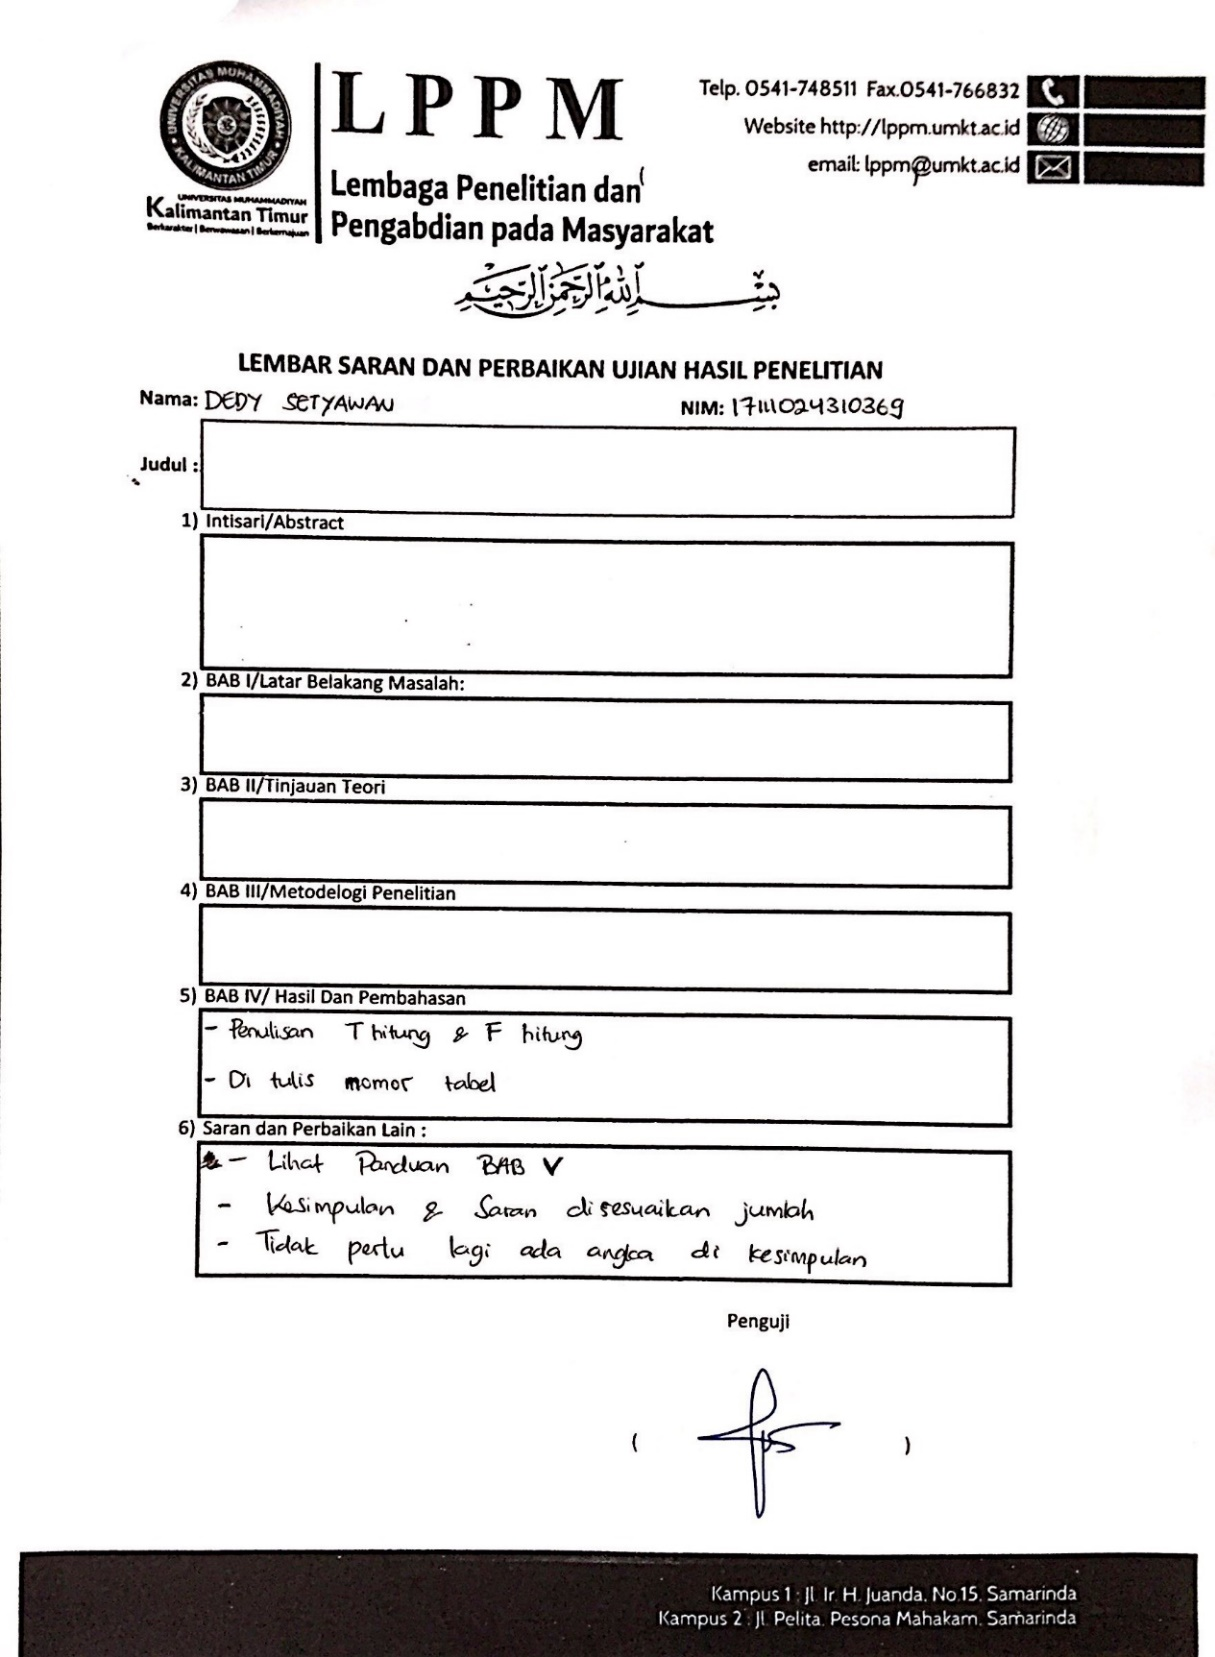 UNIVERSITAS MUHAMMADIYAH
KALIMANTAN TIMUR
UNIVERSITAS MUHAMMADIYAH
Kalimantan Timur
Berkarakter | Berwawasan | Berkemajuan
LPPM
Lembaga Penelitian dan
Pengabdian pada Masyarakat
Telp. 0541-748511 Fax.0541-766832
Website http://lppm.umkt.ac.id
email: lppm@umkt.ac.id
بِسْمِ اللَّهِ الرَّحْمَٰنِ الرَّحِيمِ
LEMBAR SARAN DAN PERBAIKAN UJIAN HASIL PENELITIAN
Nama: DEDY SETYAWAN NIM: 17111024310369
Judul :
1) Intisari/Abstract
2) BAB I/Latar Belakang Masalah:
3) BAB II/Tinjauan Teori
4) BAB III/Metodelogi Penelitian
5) BAB IV/ Hasil Dan Pembahasan
- Penulisan T hitung & F hitung
- Di tulis momor tabel
6) Saran dan Perbaikan Lain :
- Lihat Panduan BAB V
- Kesimpulan & Saran disesuaikan jumlah
- Tidak pertu lagi ada angka di kesimpulan
Penguji
( )
Kampus 1 : Jl. Ir. H. Juanda, No.15, Samarinda
Kampus 2 : Jl. Pelita, Pesona Mahakam, Samarinda